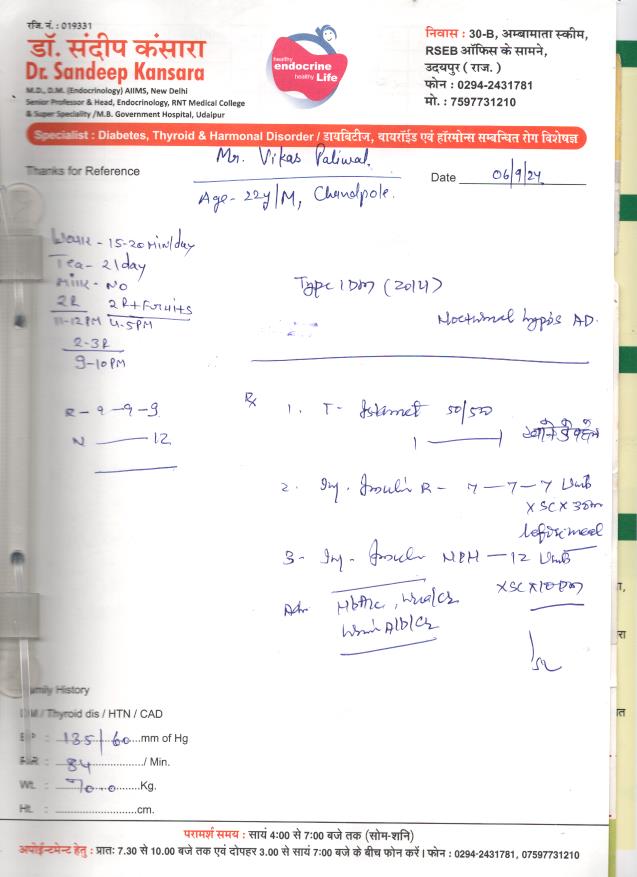 रजि. नं. : 019331
डॉ. संदीप कंसारा
Dr. Sandeep Kansara
M.D., D.M. (Endocrinology) AIIMS, New Delhi
Senior Professor & Head, Endocrinology, RNT Medical College
& Super Speciality /M.B. Government Hospital, Udaipur
healthy
endocrine
healthy Life
निवास : 30-B, अम्बामाता स्कीम,
RSEB ऑफिस के सामने,
उदयपुर ( राज. )
फोन : 0294-2431781
मो. : 7597731210
Specialist : Diabetes, Thyroid & Harmonal Disorder / डायबिटीज, थायरॉईड एवं हॉरमोन्स सम्बन्धित रोग विशेषज्ञ
Thanks for Reference
Mr. Vikas Paliwal
Date 06/9/24
Age - 22y/M, Chandpole.
15-20 Min/day
Tea - 2/day
Milk - No
2R 2R + Fruits
11-12PM 4-5PM
2-3R
9-10PM
R - 9 - 9 - 9
N 12
Type 1 DM (2014)
Nocturnal hypos AD.
Rx
1. T- Istamet 50/500
1 1 खाने से पहले
2. Inj. Insulin R - 7 - 7 - 7 Unit
x SC x 30m
before meal
3- Inj. Insulin NPH - 12 Unit
x SC x 10 PM
Adv HbA1c, Urea/Cr
Urine Alb/Cr
Family History
DM / Thyroid dis / HTN / CAD
BP : 135/60 mm of Hg
P.R : 84 / Min.
Wt. : 70.0 Kg.
Ht. : cm.
परामर्श समय : सायं 4:00 से 7:00 बजे तक (सोम-शनि)
अपोईन्टमेन्ट हेतु : प्रातः 7.30 से 10.00 बजे तक एवं दोपहर 3.00 से सायं 7:00 बजे के बीच फोन करें । फोन : 0294-2431781, 07597731210